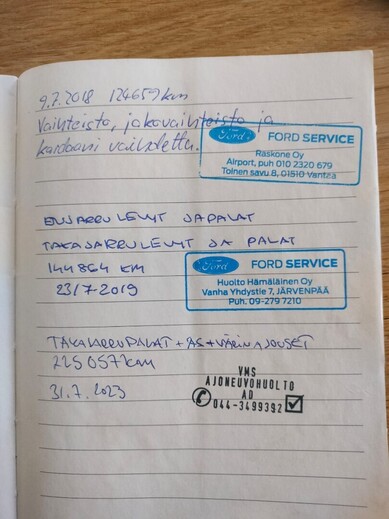 9.7.2018 124657 km
Vaihteisto, jakovaihteisto ja
kardaani vaihdettu.
Ford FORD SERVICE
Raskone Oy
Airport, puh 010 2320 679
Tolnen savu 8, 01510 Vantaa
ETUJARRULEVYT JA PALAT
TAKAJARRULEVYT JA PALAT
144864 KM
23/7-2019
Ford FORD SERVICE
Huolto Hämäläinen Oy
Vanha Yhdystie 7, JÄRVENPÄÄ
Puh. 09-279 7210
225057km
31.7.2023
VMS
AJONEUVOHUOLTO
AD
044-3499392